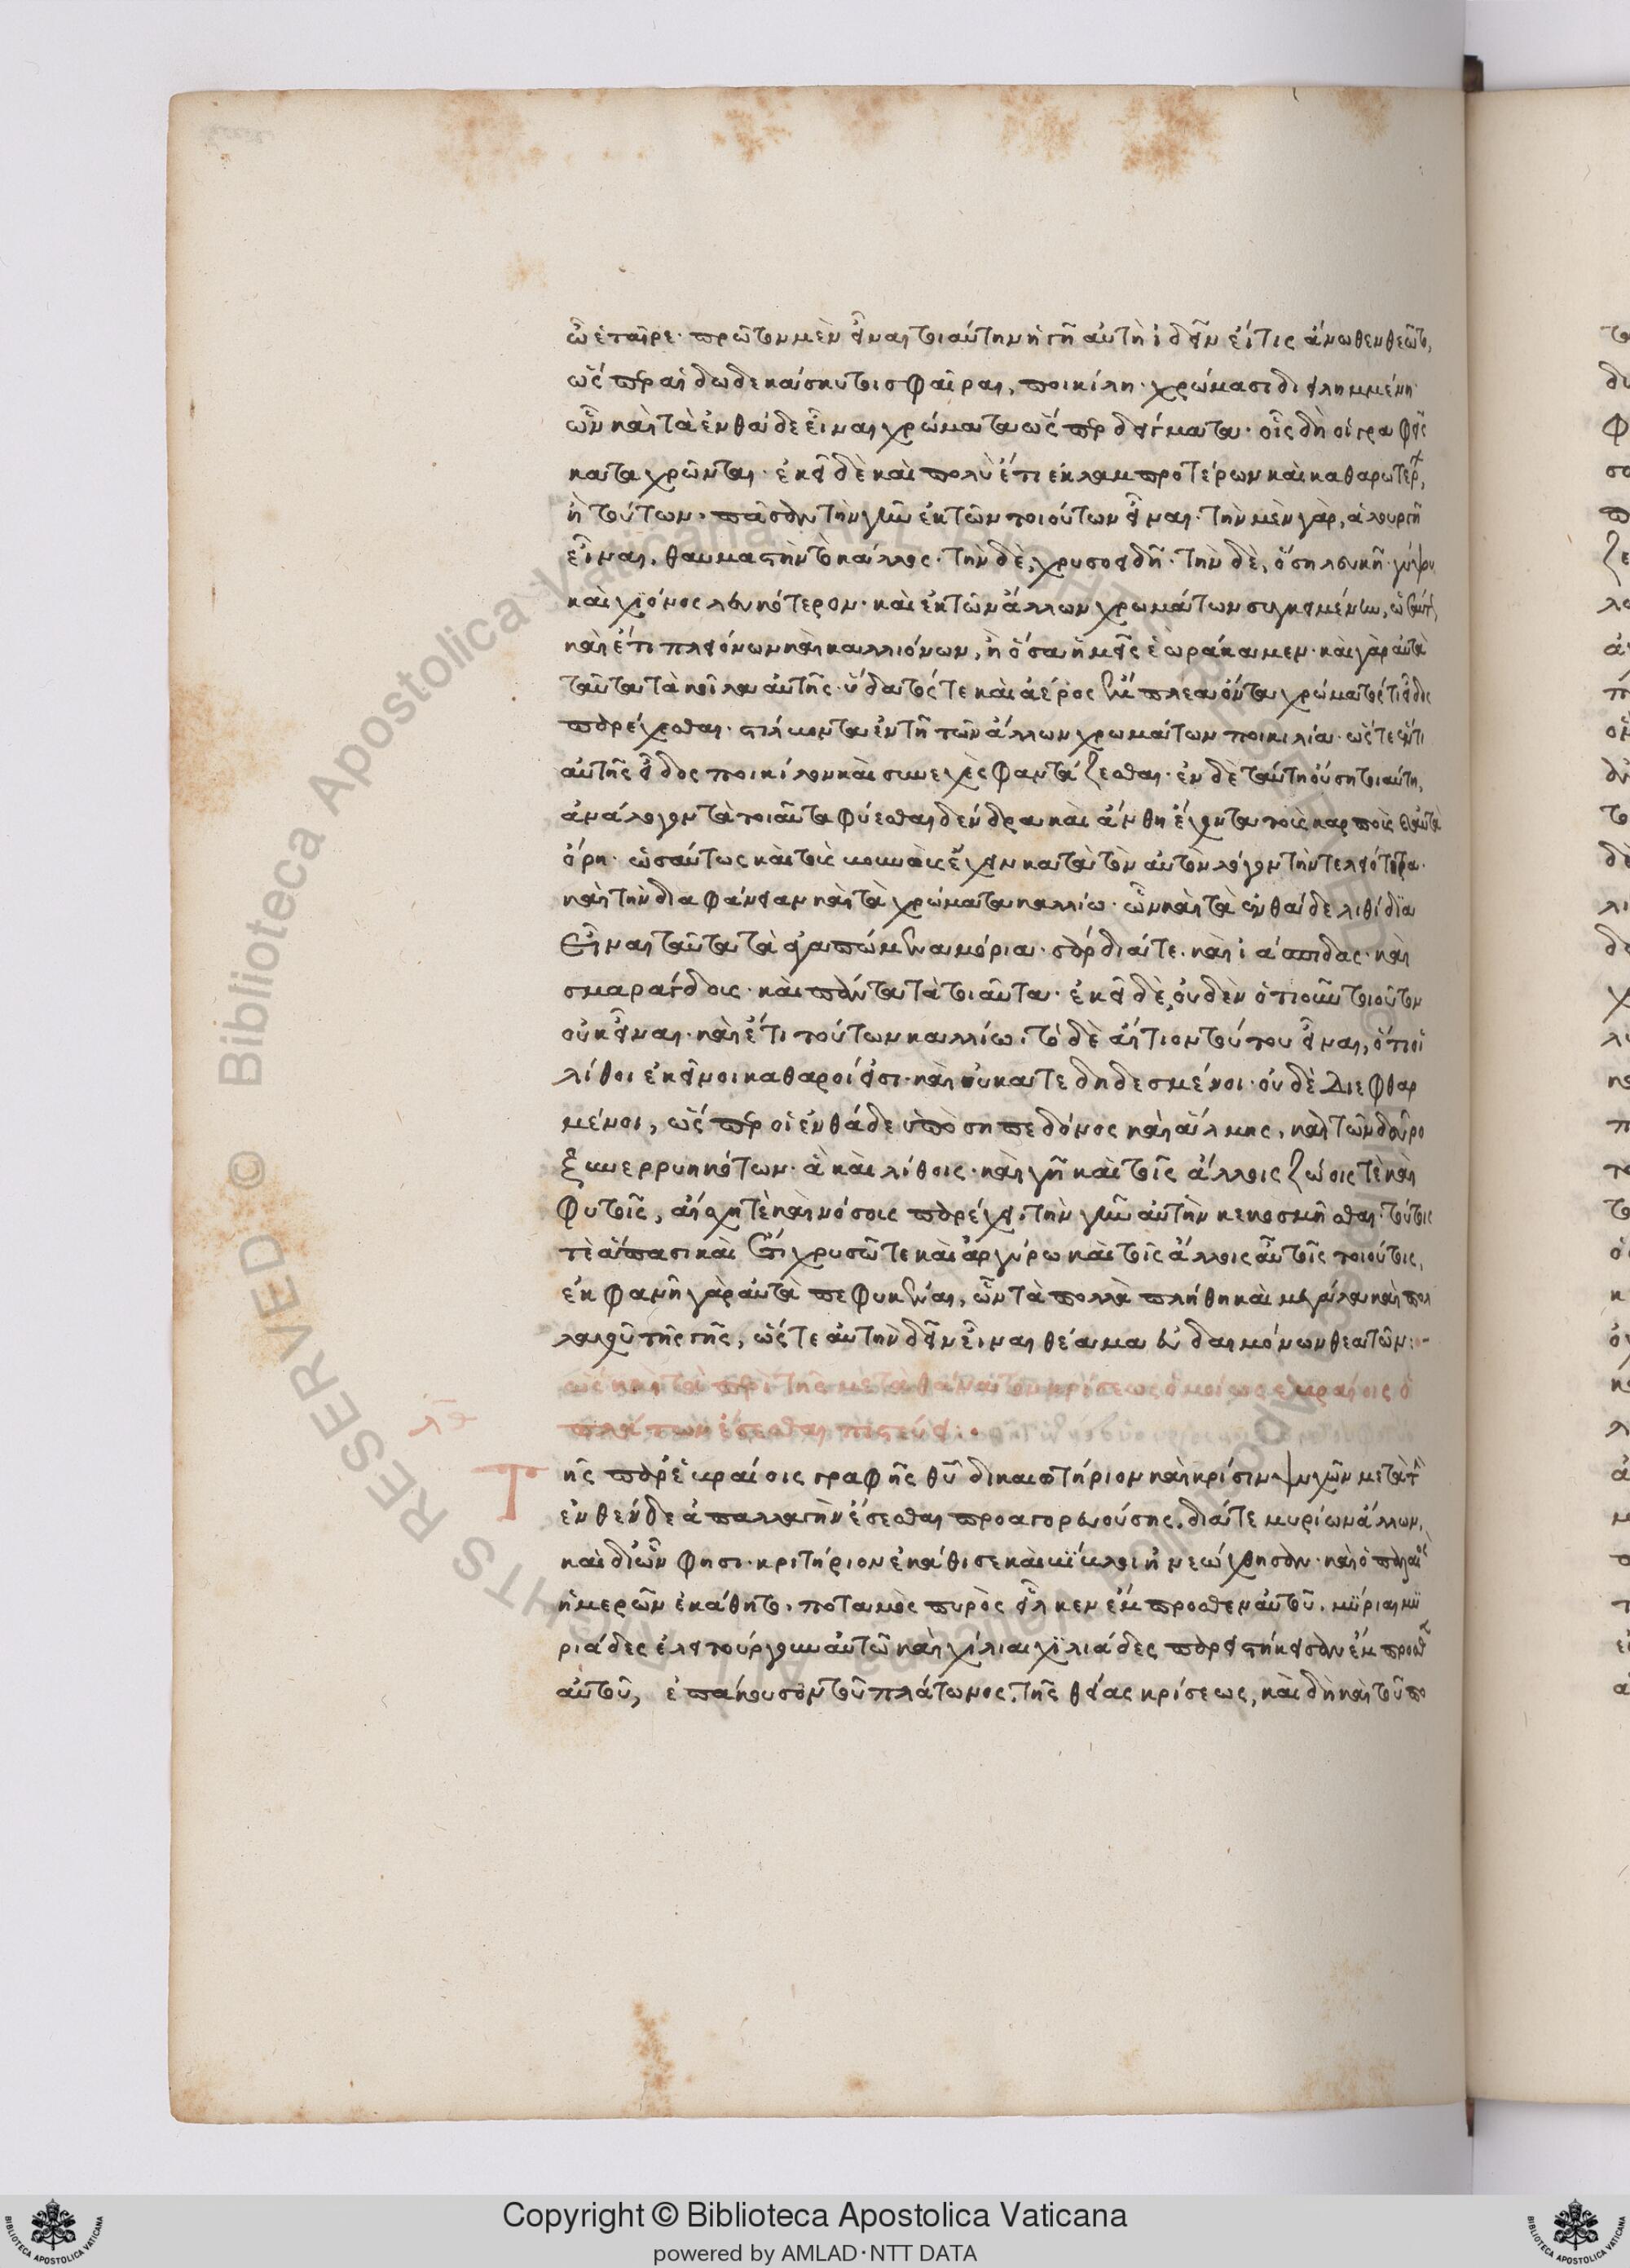 ὦ ἑταῖρε· πρῶτον μὲν εἶναι τοιαύτην ἡ γῆ αὐτὴ ἰδεῖν εἴ τις ἄνωθεν θεῶτο,
ὥσπερ αἱ δωδεκάσκυτοι σφαῖραι, ποικίλη· χρώμασι διειλημμένη·
ὧν καὶ τὰ ἐνθάδε εἶναι χρώματα ὥσπερ δείγματα· οἷς δὴ οἱ γραφεῖς
καταχρῶνται· ἐκεῖ δὲ καὶ πολὺ ἔτι ἐκ λαμπροτέρων καὶ καθαρωτέρων,
ἢ τούτων· πᾶσαν τὴν γῆν ἐκ τῶν τοιούτων εἶναι· τὴν μὲν γὰρ, ἁλουργῆ
εἶναι, θαυμαστὴν τὸ κάλλος· τὴν δὲ, χρυσοειδῆ· τὴν δὲ, ὅση λευκὴ· γύψου
καὶ χιόνος λευκότερον· καὶ ἐκ τῶν ἄλλων χρωμάτων συγκειμένην, ὡσαύτως,
καὶ ἔτι πλειόνων καὶ καλλιόνων, ἢ ὅσα ἡμεῖς ἑωράκαμεν· καὶ γὰρ αὐτὰ
ταῦτα τὰ κοῖλα αὐτῆς· ὕδατός τε καὶ ἀέρος ἔκπλεα ὄντα χρώματός τι εἶδος
παρέχεσθαι· στίλβοντα ἐν τῇ τῶν ἄλλων χρωμάτων ποικιλίᾳ· ὥστε ἕν τι
αὐτῆς εἶδος ποικίλον καὶ συνεχὲς φαντάζεσθαι· ἐν δὲ ταύτῃ οὔσῃ τοιαύτῃ,
ἀνάλογον τὰ τοιαῦτα φύεσθαι δένδρα καὶ ἄνθη ἔχοντα τοῖς καρποῖς
ὄρη· ὡσαύτως καὶ ἔχειν κατὰ τὸν αὐτὸν λόγον τήν τε λειότητα·
καὶ τὴν διαφάνειαν καὶ τὰ χρώματα καλλίω· ὧν καὶ τὰ ἐνθάδε λιθίδια
εἶναι ταῦτα τὰ ἀγαπώμενα μόρια· σάρδιά τε· καὶ ἰάσπιδας· καὶ
σμαράγδοις· καὶ πάντα τὰ τοιαῦτα· ἐκεῖ δὲ οὐδὲν ὅτι οὖν τοιοῦτον
οὐκ εἶναι· καὶ ἔτι τούτων καλλίω· τὸ δὲ αἴτιον τούτου εἶναι, ὅτι οἱ
λίθοι ἐκεῖνοι καθαροί εἰσι· καὶ οὐ κατεδηδεσμένοι· οὐδὲ διεφθαρ
μένοι, ὥσπερ οἱ ἐνθάδε ὑπὸ σηπεδόνος καὶ ἅλμης, καὶ τῶν δεῦρο
ξυνερρυηκότων· ἃ καὶ λίθοις· καὶ γῇ καὶ τοῖς ἄλλοις ζώοις τὲ καὶ
φυτοῖς, αἴσχη τὲ καὶ νόσοις παρέχει· τὴν γῆν αὐτὴν κεκοσμῆσθαι· τούτοις
τὲ ἅπασι καὶ ἔτι χρυσῶ τε καὶ ἀργύρω καὶ τοῖς ἄλλοις αὖ τοῖς τοιούτοις,
ἐκφανῆ γὰρ αὐτὰ πεφυκέναι, ὄντα πολλὰ πλήθη καὶ μεγάλα καὶ πολ
λαχοῦ τῆς γῆς, ὥστε αὐτὴν ἰδεῖν εἶναι θέαμα εὐδαιμόνων θεατῶν:-
ὡς καὶ τὰ περὶ τῆς μετὰ θάνατον κρίσεως ὁμοίως ἑβραίοις ὁ
πλάτων ἔσεσθαι πιστεύει:
Τῆς παρ' ἑβραίοις γραφῆς θεοῦ δικαιωτήριον καὶ κρίσιν ψυχῶν μετὰ τὴν
ἐνθένδε ἀπαλλαγὴν ἔσεσθαι προαγορευούσης, διά τε μυρίων ἄλλων,
καὶ δι' ὧν φησι· κριτήριον ἐκάθισε καὶ βίβλοι ἠνεώχθησαν· καὶ ὁ παλαιὸς
ἡμερῶν ἐκάθητο, ποταμὸς πυρὸς εἷλκεν ἔμπροσθεν αὐτοῦ, μύριαι μυ
ριάδες ἐλειτούργουν αὐτῶ καὶ χίλιαι χιλιάδες παρειστήκεισαν ἔμπροσθεν
αὐτοῦ, ἐπάκουσον τοῦ πλάτωνος, τῆς θείας κρίσεως, καὶ δὴ καὶ τοῦ πο
Copyright © Biblioteca Apostolica Vaticana
powered by AMLAD·NTT DATA